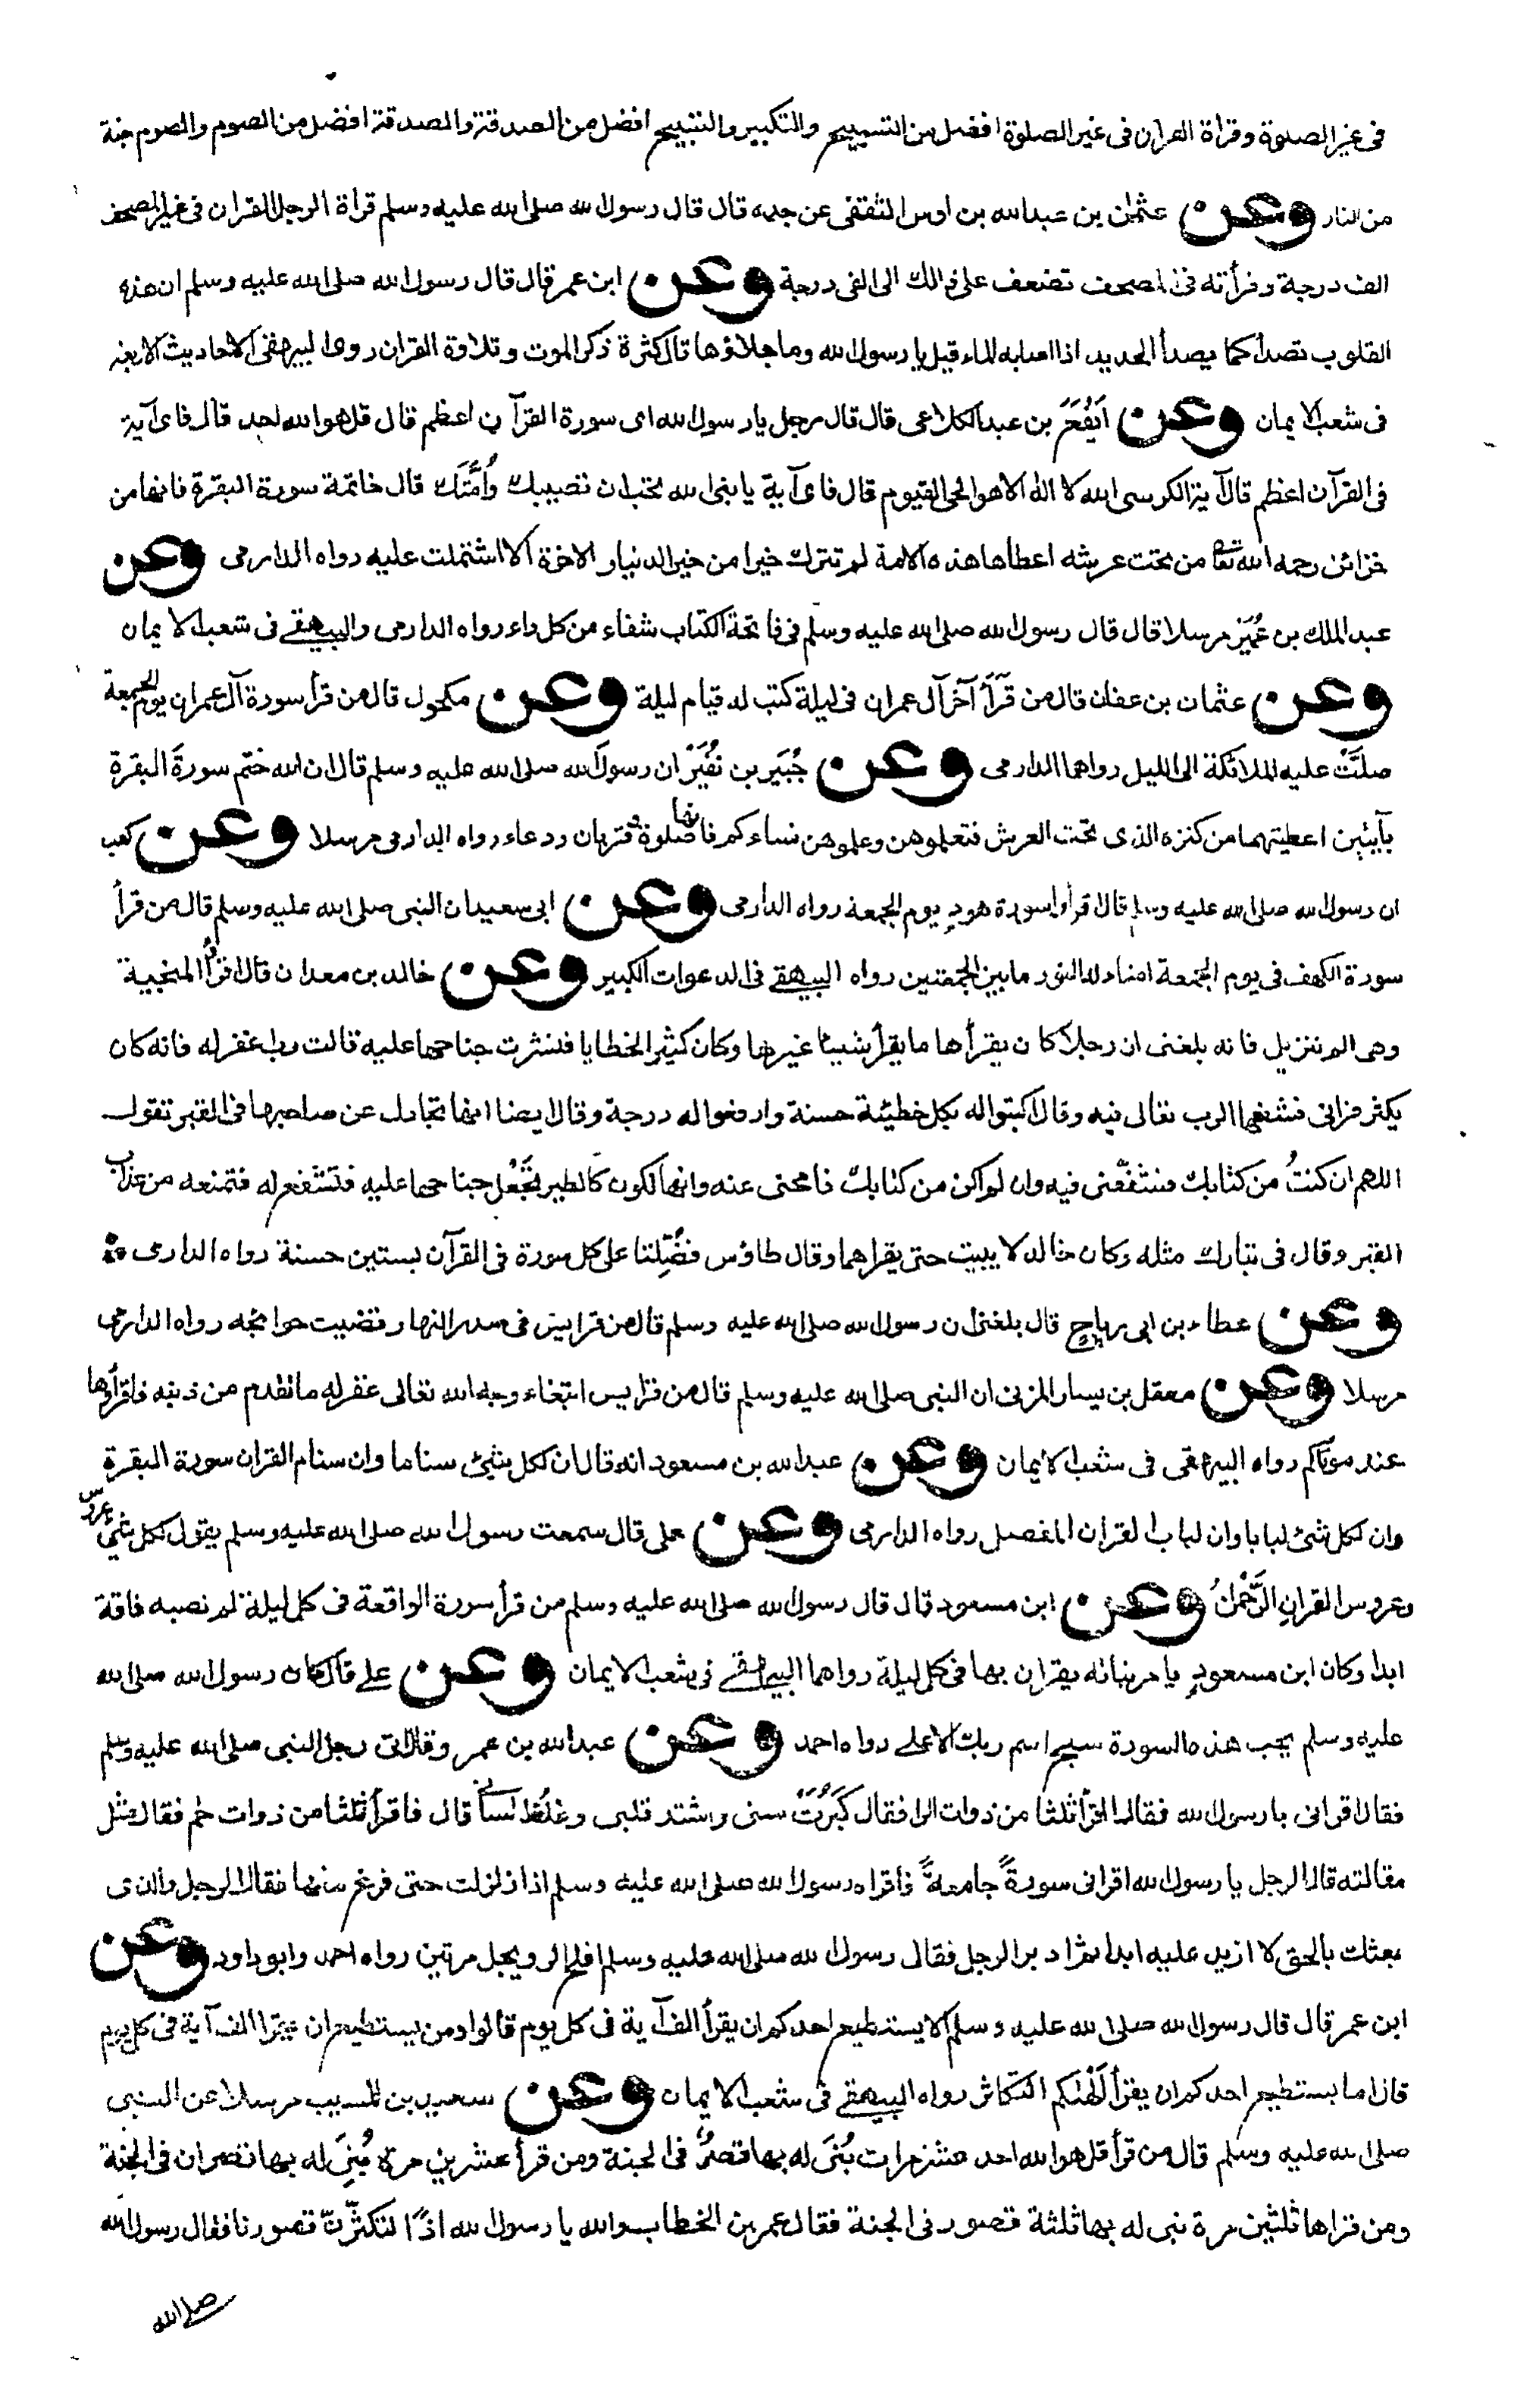 في غير الصلوة وقراة القران في غير الصلوة افضل من التسبيح والتكبير والتسبيح افضل من الصدقة والصدقة افضل من الصوم والصوم جنة
من النار وعن عثمان بن عبدالله بن اوس الثقفي عن جده قال قال رسول الله صلى الله عليه وسلم قراة الرجل القران في غير المصحف
الف درجة وقرأته في المصحف تضعف على ذلك الى الفي درجة وعن ابن عمر قال قال رسول الله صلى الله عليه وسلم ان هذه
القلوب تصدأ كما يصدأ الحديد اذا اصابه الماء قيل يا رسول الله وما جلاؤها قال كثرة ذكر الموت وتلاوة القران روى البيهقي الاحاديث الاربعة
في شعب الايمان وعن اَيفُعَ بن عبد الكلاعي قال قال رجل يا رسول الله اى سورة القرآن اعظم قال قل هو الله احد قال فاى آية
في القرآن اعظم قال آية الكرسي الله لا اله الا هو الحي القيوم قال فاى آية يا نبي الله تحب ان تصيبك وأُمَّتَك قال خاتمة سورة البقرة فانها من
خزائن رحمه الله تعا من تحت عرشه اعطاها هذه الامة لم تترك خيرا من خير الدنيا والاخرة الا اشتملت عليه رواه الدارمي وعن
عبد الملك بن عُمَيْر مرسلا قال قال رسول الله صلى الله عليه وسلم في فاتحة الكتاب شفاء من كل داء رواه الدارمي والبيهقي في شعب الايمان
وعن عثمان بن عفان قال من قَرَأَ آخر آل عمران في ليلة كتب له قيام ليلة وعن مكحول قال من قرأ سورة آل عمران يوم الجمعة
صلَّتْ عليه الملائكة الى الليل رواهما الدارمي وعن جُبَير بن نُفَيْر ان رسولَ الله صلى الله عليه وسلم قال ان الله ختم سورةَ البقرة
بآيتين اعطيتهما من كنزه الذى تحت العرش فتعلموهن وعلموهن نساءكم فانها صلوة وقربان ودعاء رواه الدارمي مرسلا وعن كعب
ان رسول الله صلى الله عليه وسلم قال اقرأوا سورة هود يوم الجمعة رواه الدارمي وعن ابي سعيد ان النبي صلى الله عليه وسلم قال من قرأ
سورة الكهف في يوم الجمعة اضاء له النور ما بين الجمعتين رواه البيهقي في الدعوات الكبير وعن خالد بن معدان قال اقرأوا المنجية
وهي الم تنزيل فانه بلغني ان رجلا كان يقرأها ما يقرأ شيئا غيرها وكان كثير الخطايا فنشرت جناحها عليه قالت رب اغفر له فانه كان
يكثر قراتي فشفعها الرب تعالى فيه وقال اكتبوا له بكل خطيئة حسنة وارفعوا له درجة وقال ايضا انها تجادل عن صاحبها في القبر تقول
اللهم ان كنتُ من كتابك فشفّعني فيه وان لم اكن من كتابك فامحني عنه وانها تكون كالطير تَجْعَل جناحها عليه فتَشْفَع له فتمنعه من عذاب
القبر وقال في تبارك مثله وكان خالد لا يبيت حتى يقراهما وقال طاؤس فُضِّلتا على كل سورة في القرآن بستين حسنة رواه الدارمي
وعن عطاء بن ابي رباح قال بلغني ان رسول الله صلى الله عليه وسلم قال من قرا يس في صدر النهار قضيت حوائجه رواه الدارمي
مرسلا وعن معقل بن يسار المزني ان النبي صلى الله عليه وسلم قال من قرا يس ابتغاء وجه الله تعالى غفر له ما تقدم من ذنبه فاقرأوها
عند موتاكم رواه البيهقي في شعب الايمان وعن عبدالله بن مسعود انه قال ان لكل شئ سناما وان سنام القران سورة البقرة
وان لكل شئ لبابا وان لباب القران المفصل رواه الدارمي وعن على قال سمعت رسول الله صلى الله عليه وسلم يقول لكل شئ عروس
وعروس القرانِ الرَّحْمٰنُ وعن ابن مسعود قال قال رسول الله صلى الله عليه وسلم من قرأ سورة الواقعة في كل ليلة لم تصبه فاقة
ابدا وكان ابن مسعود يامر بناته يقران بها في كل ليلة رواهما البيهقي في شعب الايمان وعن على قال كان رسول الله صلى الله
عليه وسلم يحب هذه السورة سبح اسم ربك الاعلى رواه احمد وعن عبدالله بن عمر وقال اتى رجل النبي صلى الله عليه وسلم
فقال اقراني يا رسول الله فقال اقرأ ثلثا من ذوات الرا فقال كَبُرَتْ سنى واشتد قلبي وغَلُظ لساني قال فاقرأ ثلثا من ذوات حم فقال مثل
مقالته قال الرجل يا رسول الله اقراني سورةً جامعةً فاقراه رسول الله صلى الله عليه وسلم اذا زلزلت حتى فرغ منها فقال الرجل والذى
بعثك بالحق لا ازيد عليه ابدا ثم ادبر الرجل فقال رسول الله صلى الله عليه وسلم افلح الرويجل مرتين رواه احمد وابو داود وعن
ابن عمر قال قال رسول الله صلى الله عليه وسلم الا يستطيع احدكم ان يقرأ الف آية في كل يوم قالوا ومن يستطيع ان يقرا الف آية في كل يوم
قال اما يستطيع احدكم ان يقرأ اَلْهٰىكم التكاثر رواه البيهقي في شعب الايمان وعن سعيد بن المسيب مرسلا عن النبي
صلى الله عليه وسلم قال من قرأ قل هو الله احد عشر مرات بُنيَ له بها قصرٌ في الجنة ومن قرأ عشرين مرة بُنِيَ له بها قصران في الجنة
ومن قراها ثلثين مرة بنى له بها ثلثة قصور في الجنة فقال عمر بن الخطاب والله يا رسول الله اذًا لتكثرّنّ قصورنا فقال رسول الله
صلى الله